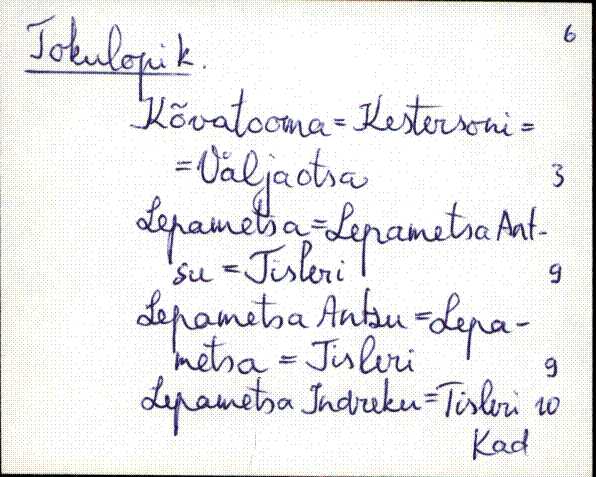 6
Tokulopik.
Kõvatooma = Kestersoni =
= Väljaotsa 3
Lepametsa = Lepametsa Ant-
su = Tisleri 9
Lepametsa Antsu = Lepa-
metsa = Tisleri 9
Lepametsa Indreku = Tisleri 10
Kad